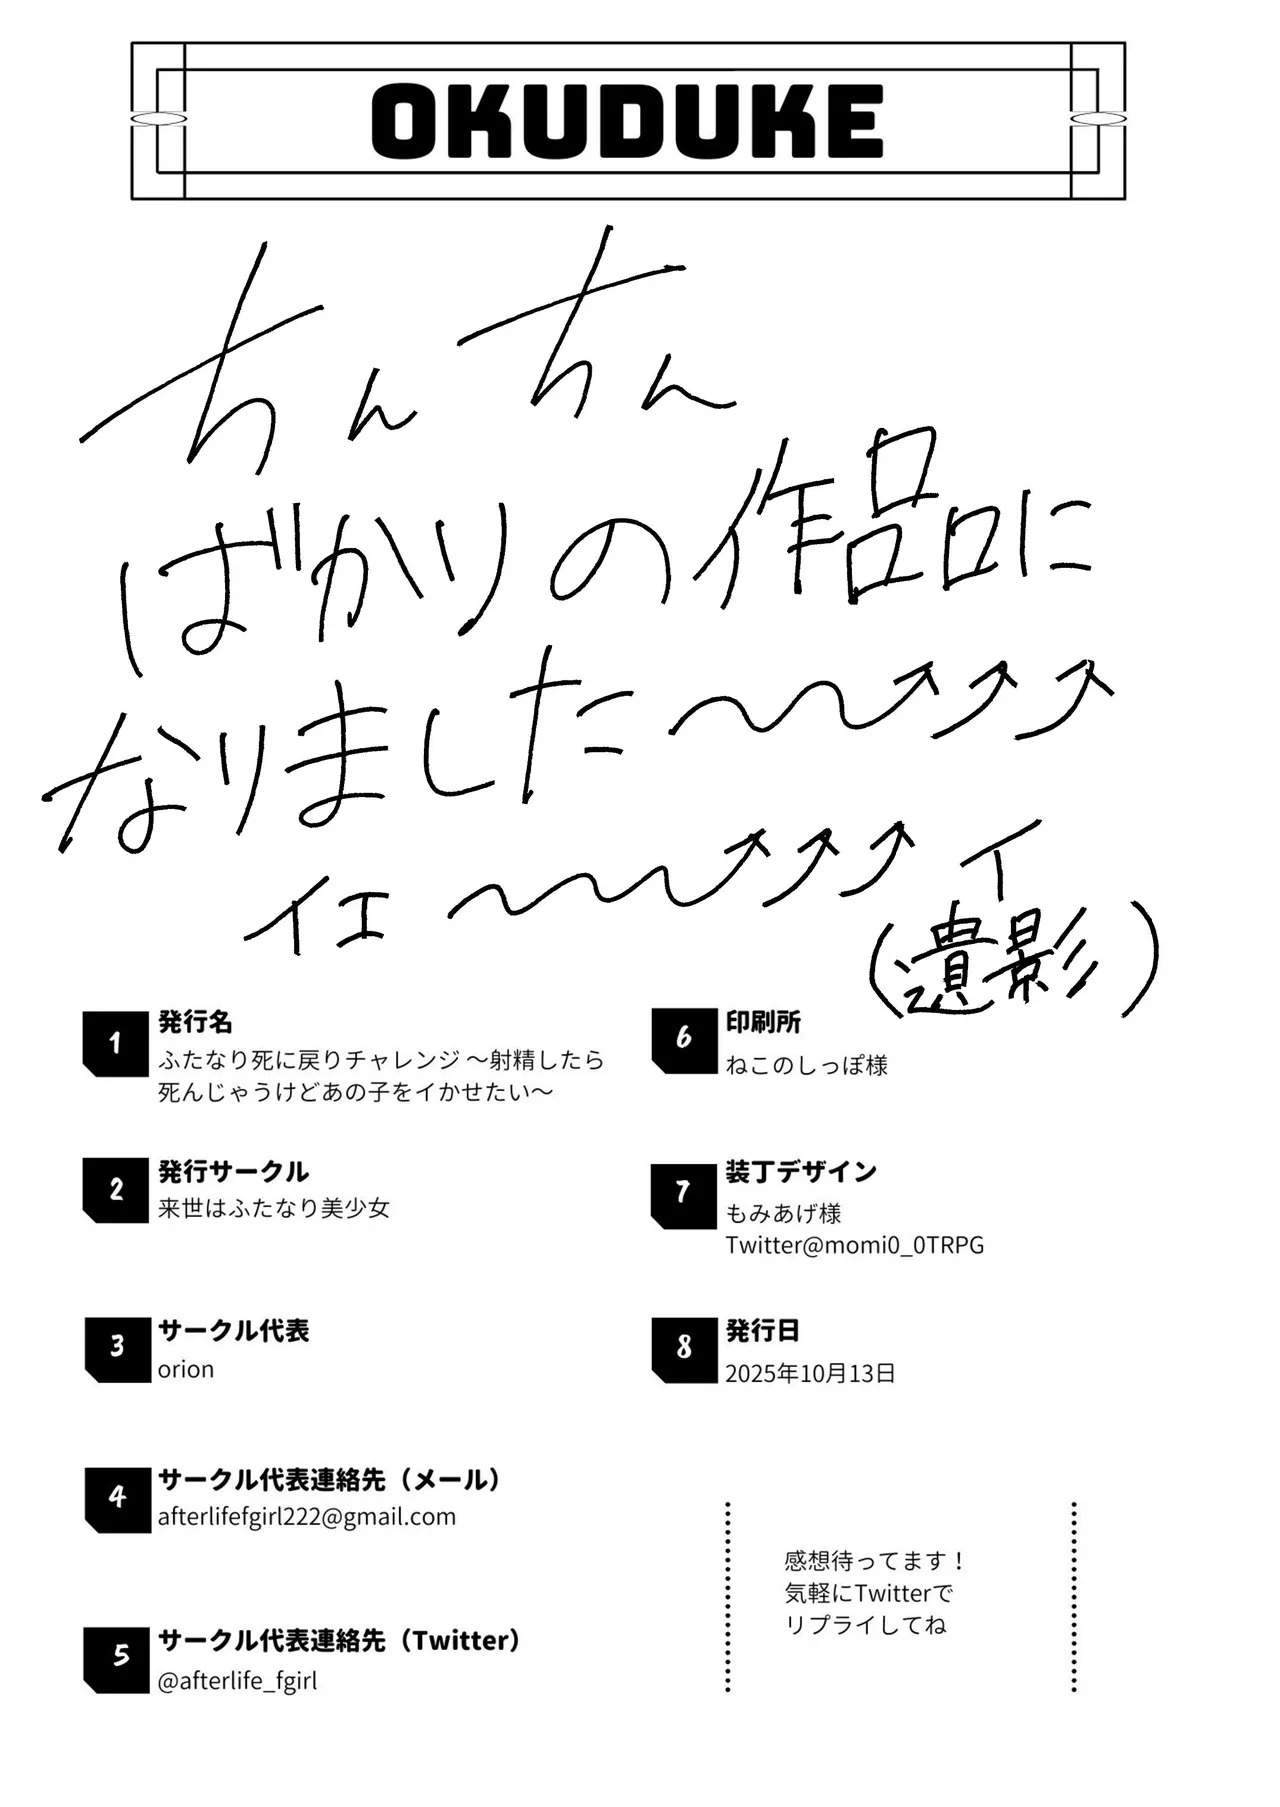 OKUDUKE
ちんちん
ばかりの作品に
なりました〜〜⤴⤴⤴
イエ〜〜⤴⤴⤴イ
(遺影)
1 発行名
ふたなり死に戻りチャレンジ 〜射精したら
死んじゃうけどあの子をイかせたい〜
2 発行サークル
来世はふたなり美少女
3 サークル代表
orion
4 サークル代表連絡先（メール）
afterlifefgirl222@gmail.com
5 サークル代表連絡先（Twitter）
@afterlife_fgirl
6 印刷所
ねこのしっぽ様
7 装丁デザイン
もみあげ様
Twitter@momi0_0TRPG
8 発行日
2025年10月13日
感想待ってます！
気軽にTwitterで
リプライしてね